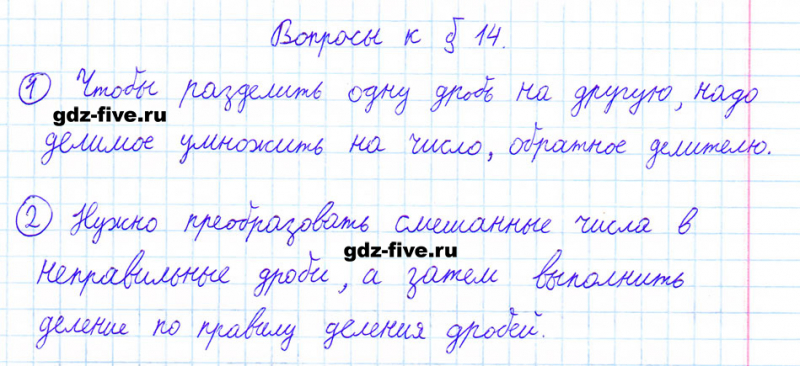 Вопросы к § 14.
① Чтобы разделить одну дробь на другую, надо
gdz-five.ru
делимое умножить на число, обратное делителю.
② Нужно преобразовать смешанные числа в
gdz-five.ru
неправильные дроби, а затем выполнить
деление по правилу деления дробей.